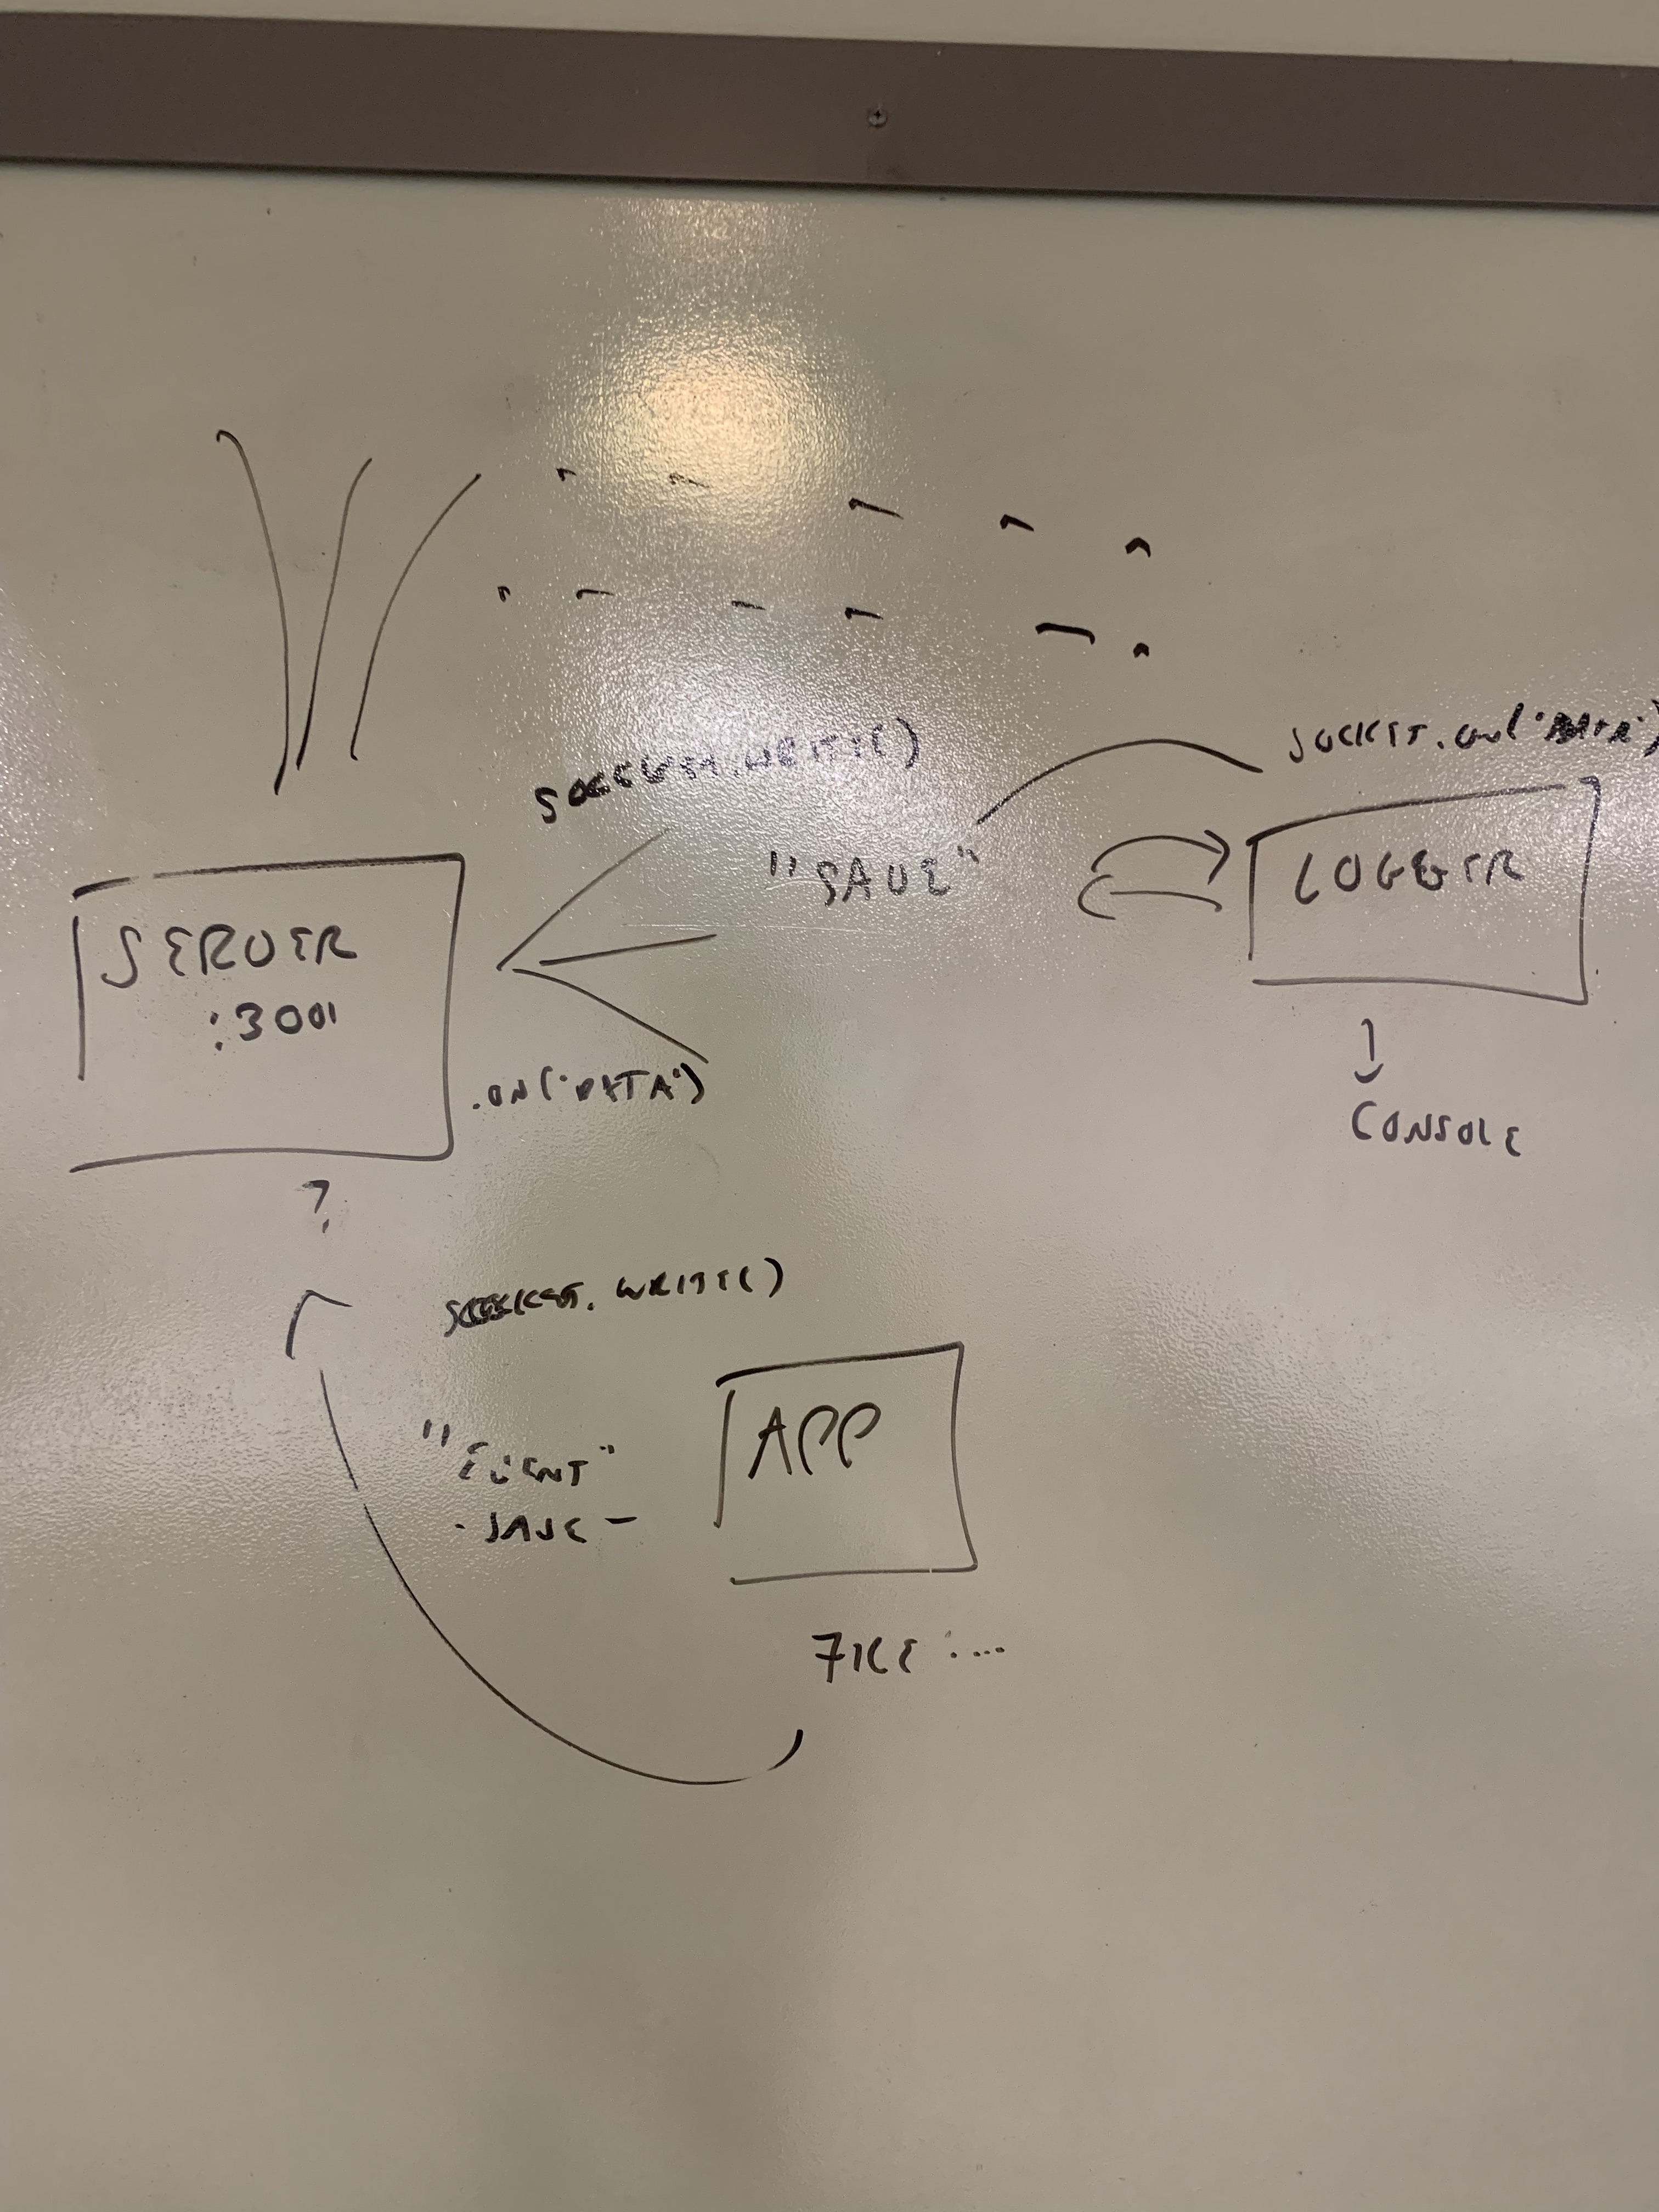 SOCKET.WRITE()
SOCKET.ON('DATA')
"SAVE"
LOGGER
SERVER
:3001
.ON('DATA')
CONSOLE
?
SOCKET.WRITE()
APP
"EVENT"
- SAVE -
FILE :....